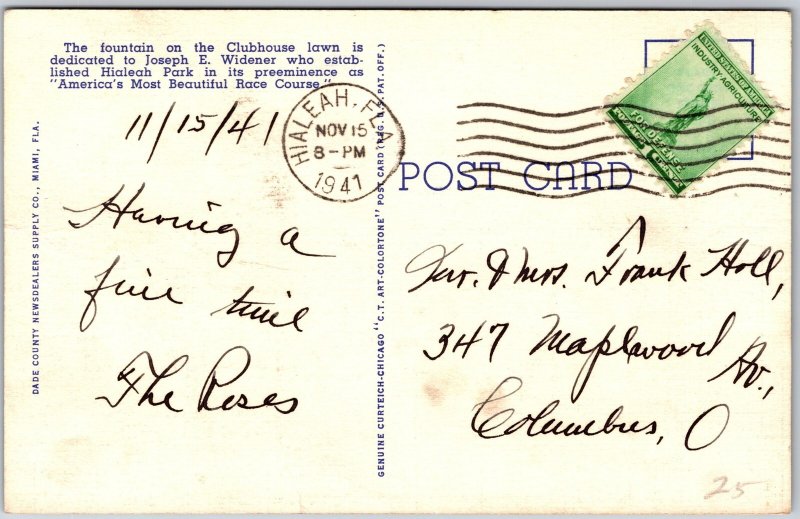 The fountain on the Clubhouse lawn is
dedicated to Joseph E. Widener who estab-
lished Hialeah Park in its preeminence as
"America's Most Beautiful Race Course."
11/15/41
Having a
fine time
The Roses
DADE COUNTY NEWSDEALERS SUPPLY CO., MIAMI, FLA.
GENUINE CURTEICH-CHICAGO "C.T. ART-COLORTONE" POST CARD (REG. U.S. PAT. OFF.)
HIALEAH, FLA.
NOV 15
8-PM
1941
POST CARD
UNITED STATES OF AMERICA
INDUSTRY AGRICULTURE
FOR DEFENSE
Mr. & Mrs. Frank Holl,
347 Maplewood
Av.,
Columbus, O
25